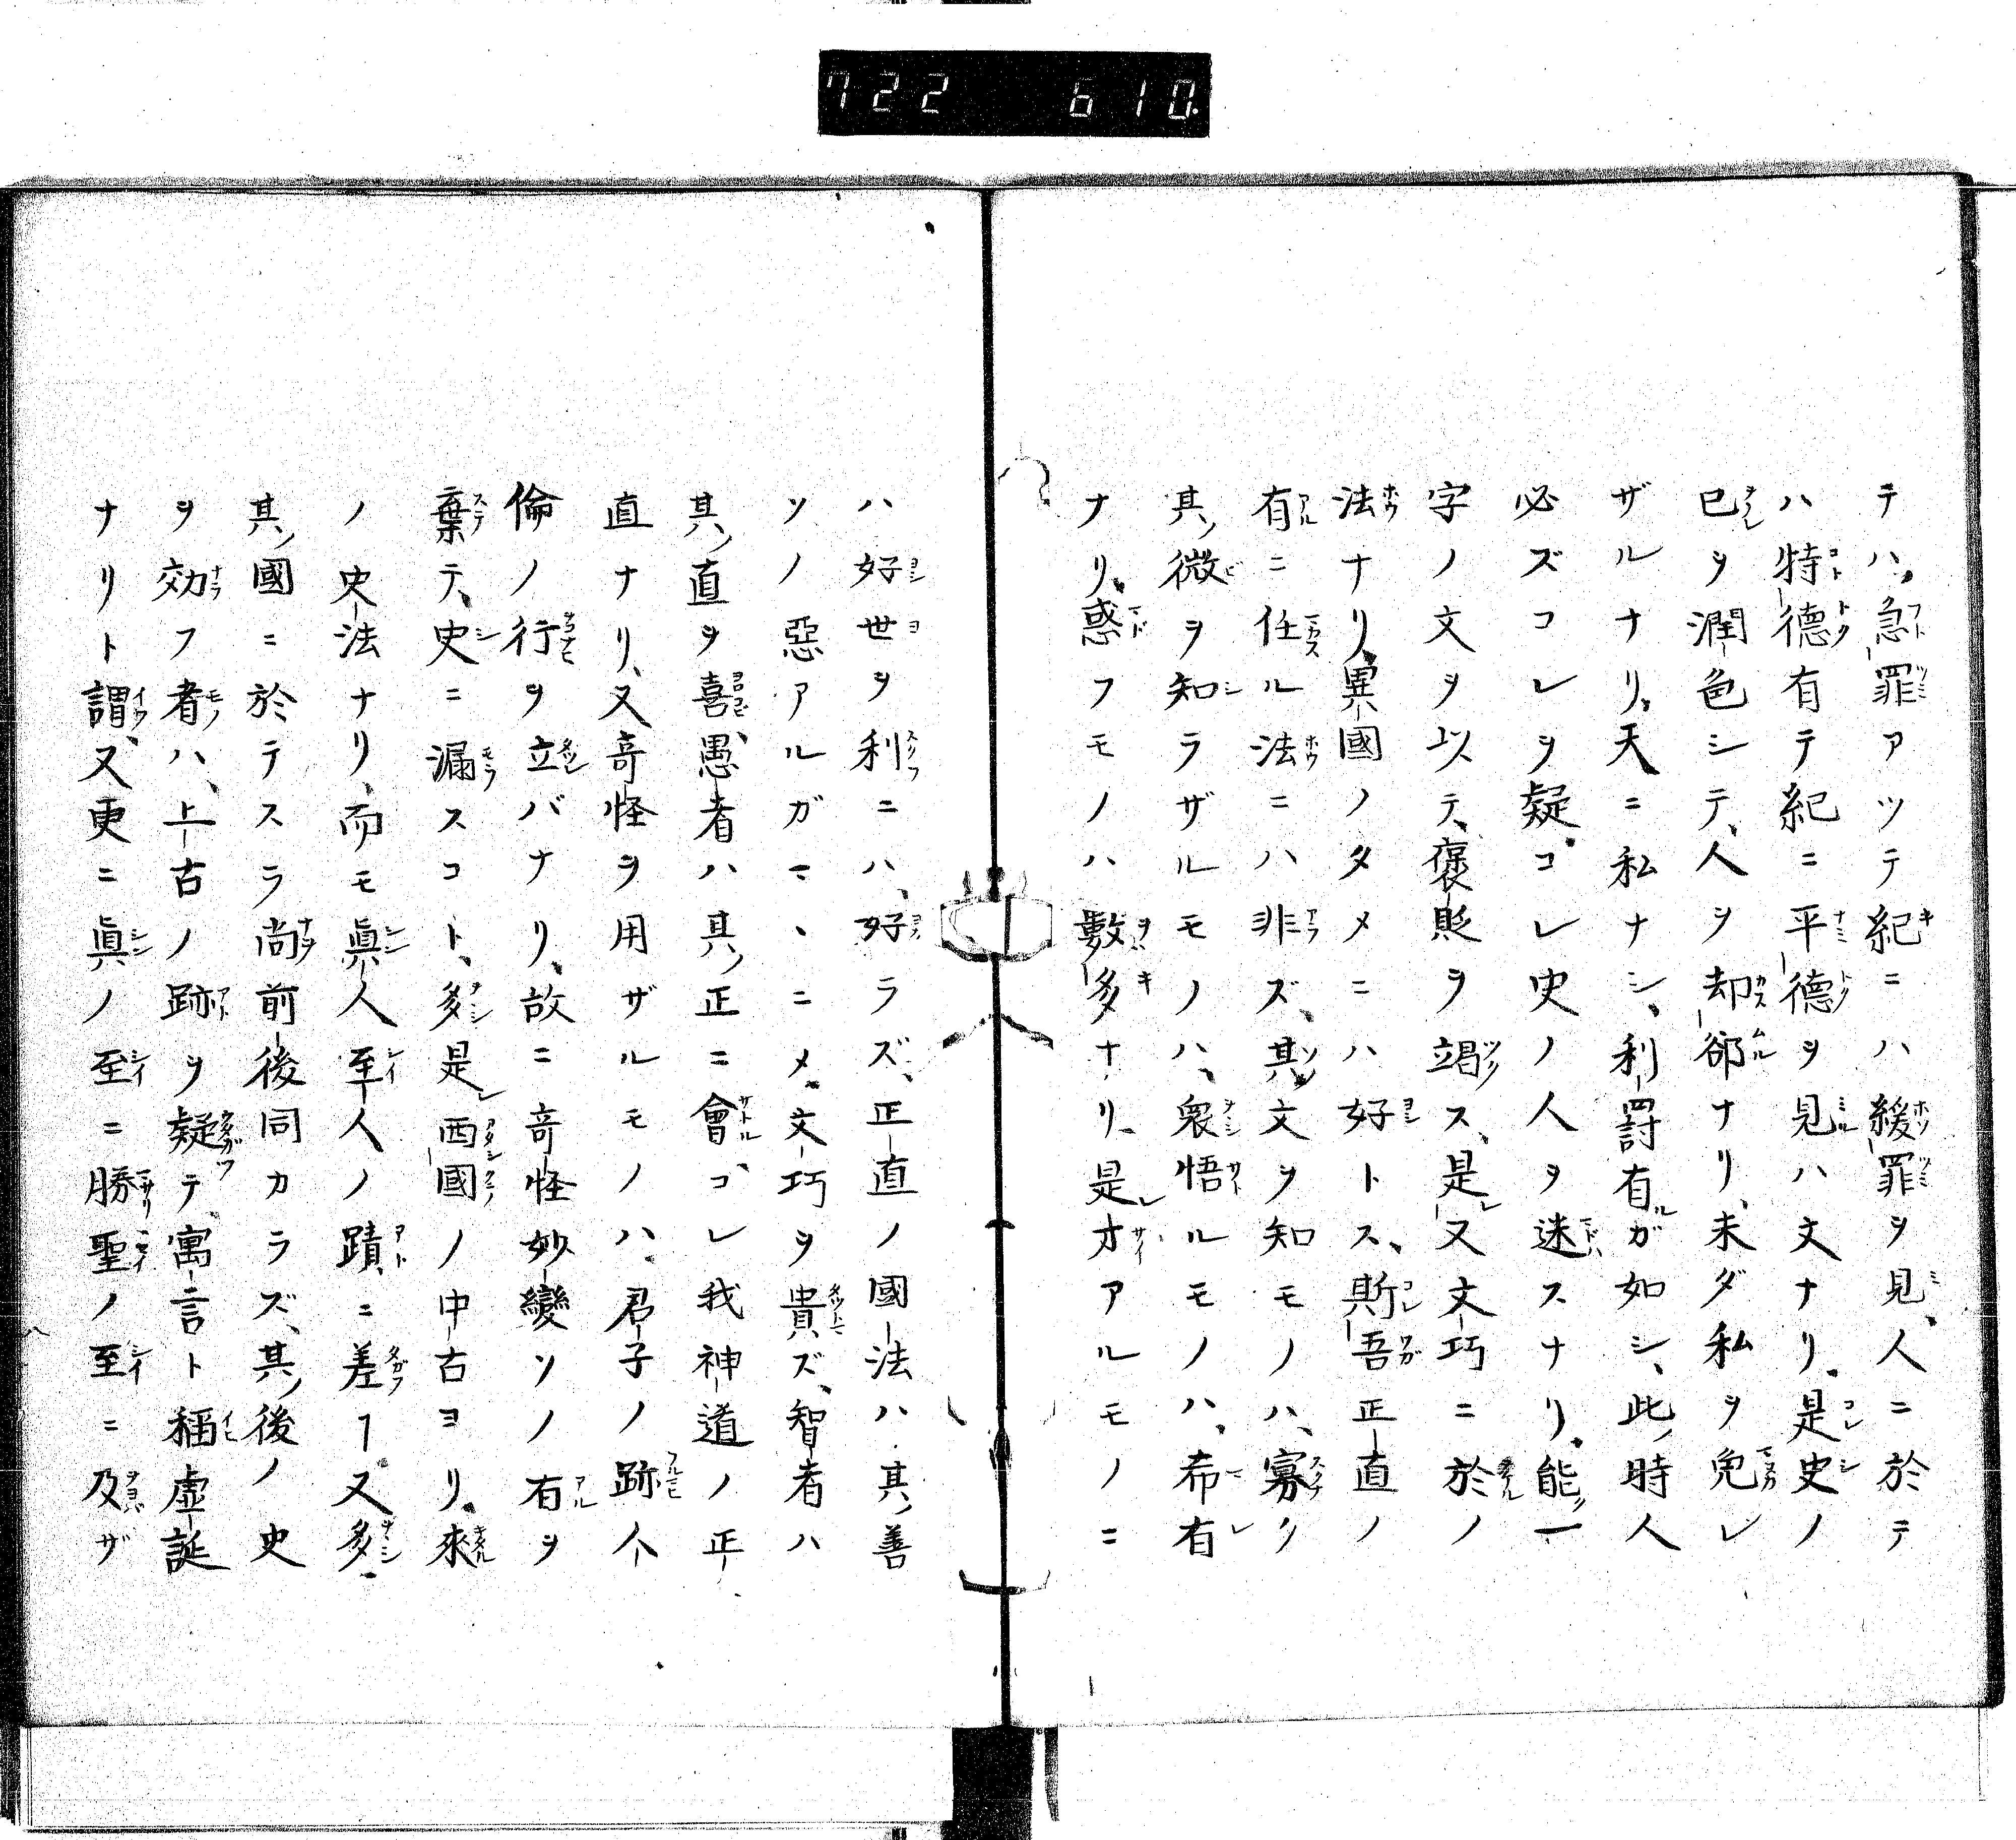 722 610.
テハ、急罪アツテ紀ニハ緩罪ヲ見、人ニ於テ
ハ特德有テ紀ニ平德ヲ見ハ文ナリ。是史ノ
已ヲ潤色シテ、人ヲ却郤ナリ、未ダ私ヲ免レ
ザルナリ。天ニ私ナシ、利罸有ガ如シ、此ノ時人
必ズコレヲ疑。コレ史ノ人ヲ迷スナリ。能ノ一
字ノ文ヲ以テ、褒貶ヲ竭ス、是レ又文巧ニ於ノ
法ナリ。異國ノタメニハ好トス、斯吾正直ノ
有ニ任ル法ニハ非ズ、其ノ文ヲ知モノハ、寡ク
其ノ微ヲ知ラザルモノハ、衆悟ルモノハ、希有
ナリ。惑フモノハ數多ナリ、是レ才アルモノニ
ハ、好世ヲ利ニハ、好ラズ、正直ノ國法ハ、其ノ善
ソノ惡アルガマヽニメ。文巧ヲ貴ズ、智者ハ
其ノ直ヲ喜、愚者ハ其ノ正ニ會、コレ我神道ノ正
直ナリ、又奇怪ヲ用ザルモノハ、君子ノ跡人
倫ノ行ヲ立バナリ、故ニ奇怪妙變ソノ有ヲ
棄テ、史ニ漏スコト、多是レ西國ノ中古ヨリ。來
ノ史法ナリ、而モ眞人至人ノ蹟ニ差フ。又多。
其ノ國ニ於テスラ尚前後同カラズ、其ノ後ノ史
ヲ効フ者ハ、上古ノ跡ヲ疑テ、寓言ト稱虛誕
ナリト謂、又更ニ眞ノ至ニ勝聖ノ至ニ及ザ